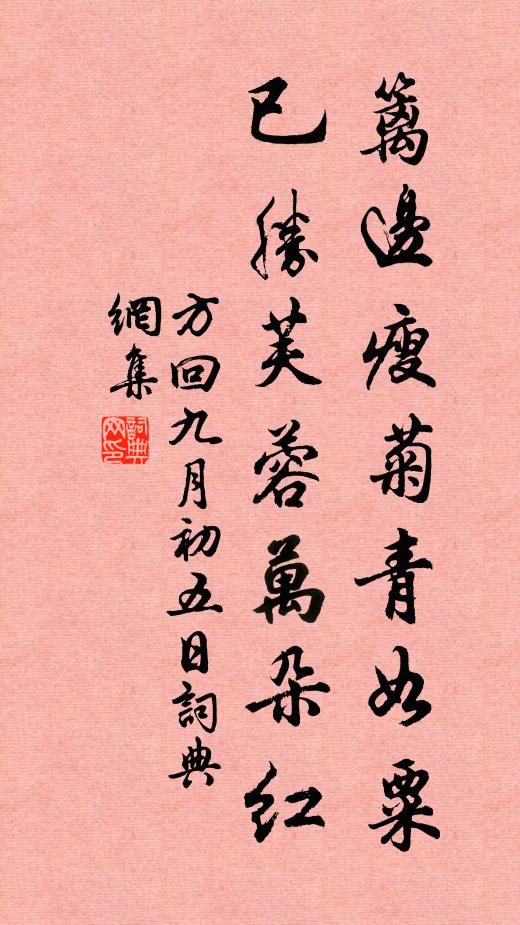 籬邊瘦菊青如粟
已勝芙蓉萬朵紅
方回九月初五日詞典
網集
詞典網印